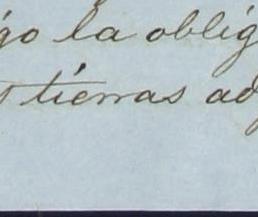 go la oblig
tierras ad